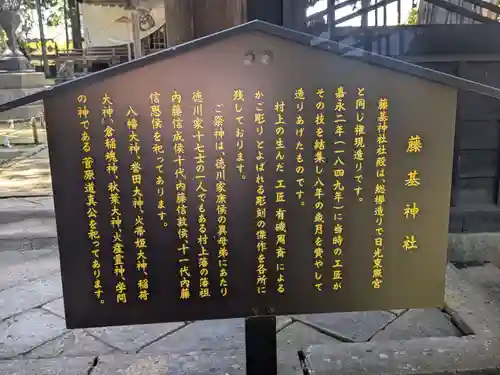 藤基神社
藤基神社社殿は、総欅造りで日光東照宮
と同じ権現造りです。
嘉永二年（一八四九年）に当時の工匠が
その技を結集し八年の歳月を費やして
造りあげたものです。
村上の生んだ工匠 有磯周斎による
かご彫りとよばれる彫刻の傑作を各所に
残しております。
ご祭神は、徳川家康侯の異母弟にあたり
徳川家十七士の一人でもある村上藩の藩祖
内藤信成侯十代内藤信敦侯、十一代内藤
信思侯を祀ってあります。
八幡大神、誉田大神、火帯姫大神、稲荷
大神、倉稲魂神、秋葉大神、火産霊神、学問
の神である 菅原道真公を祀ってあります。